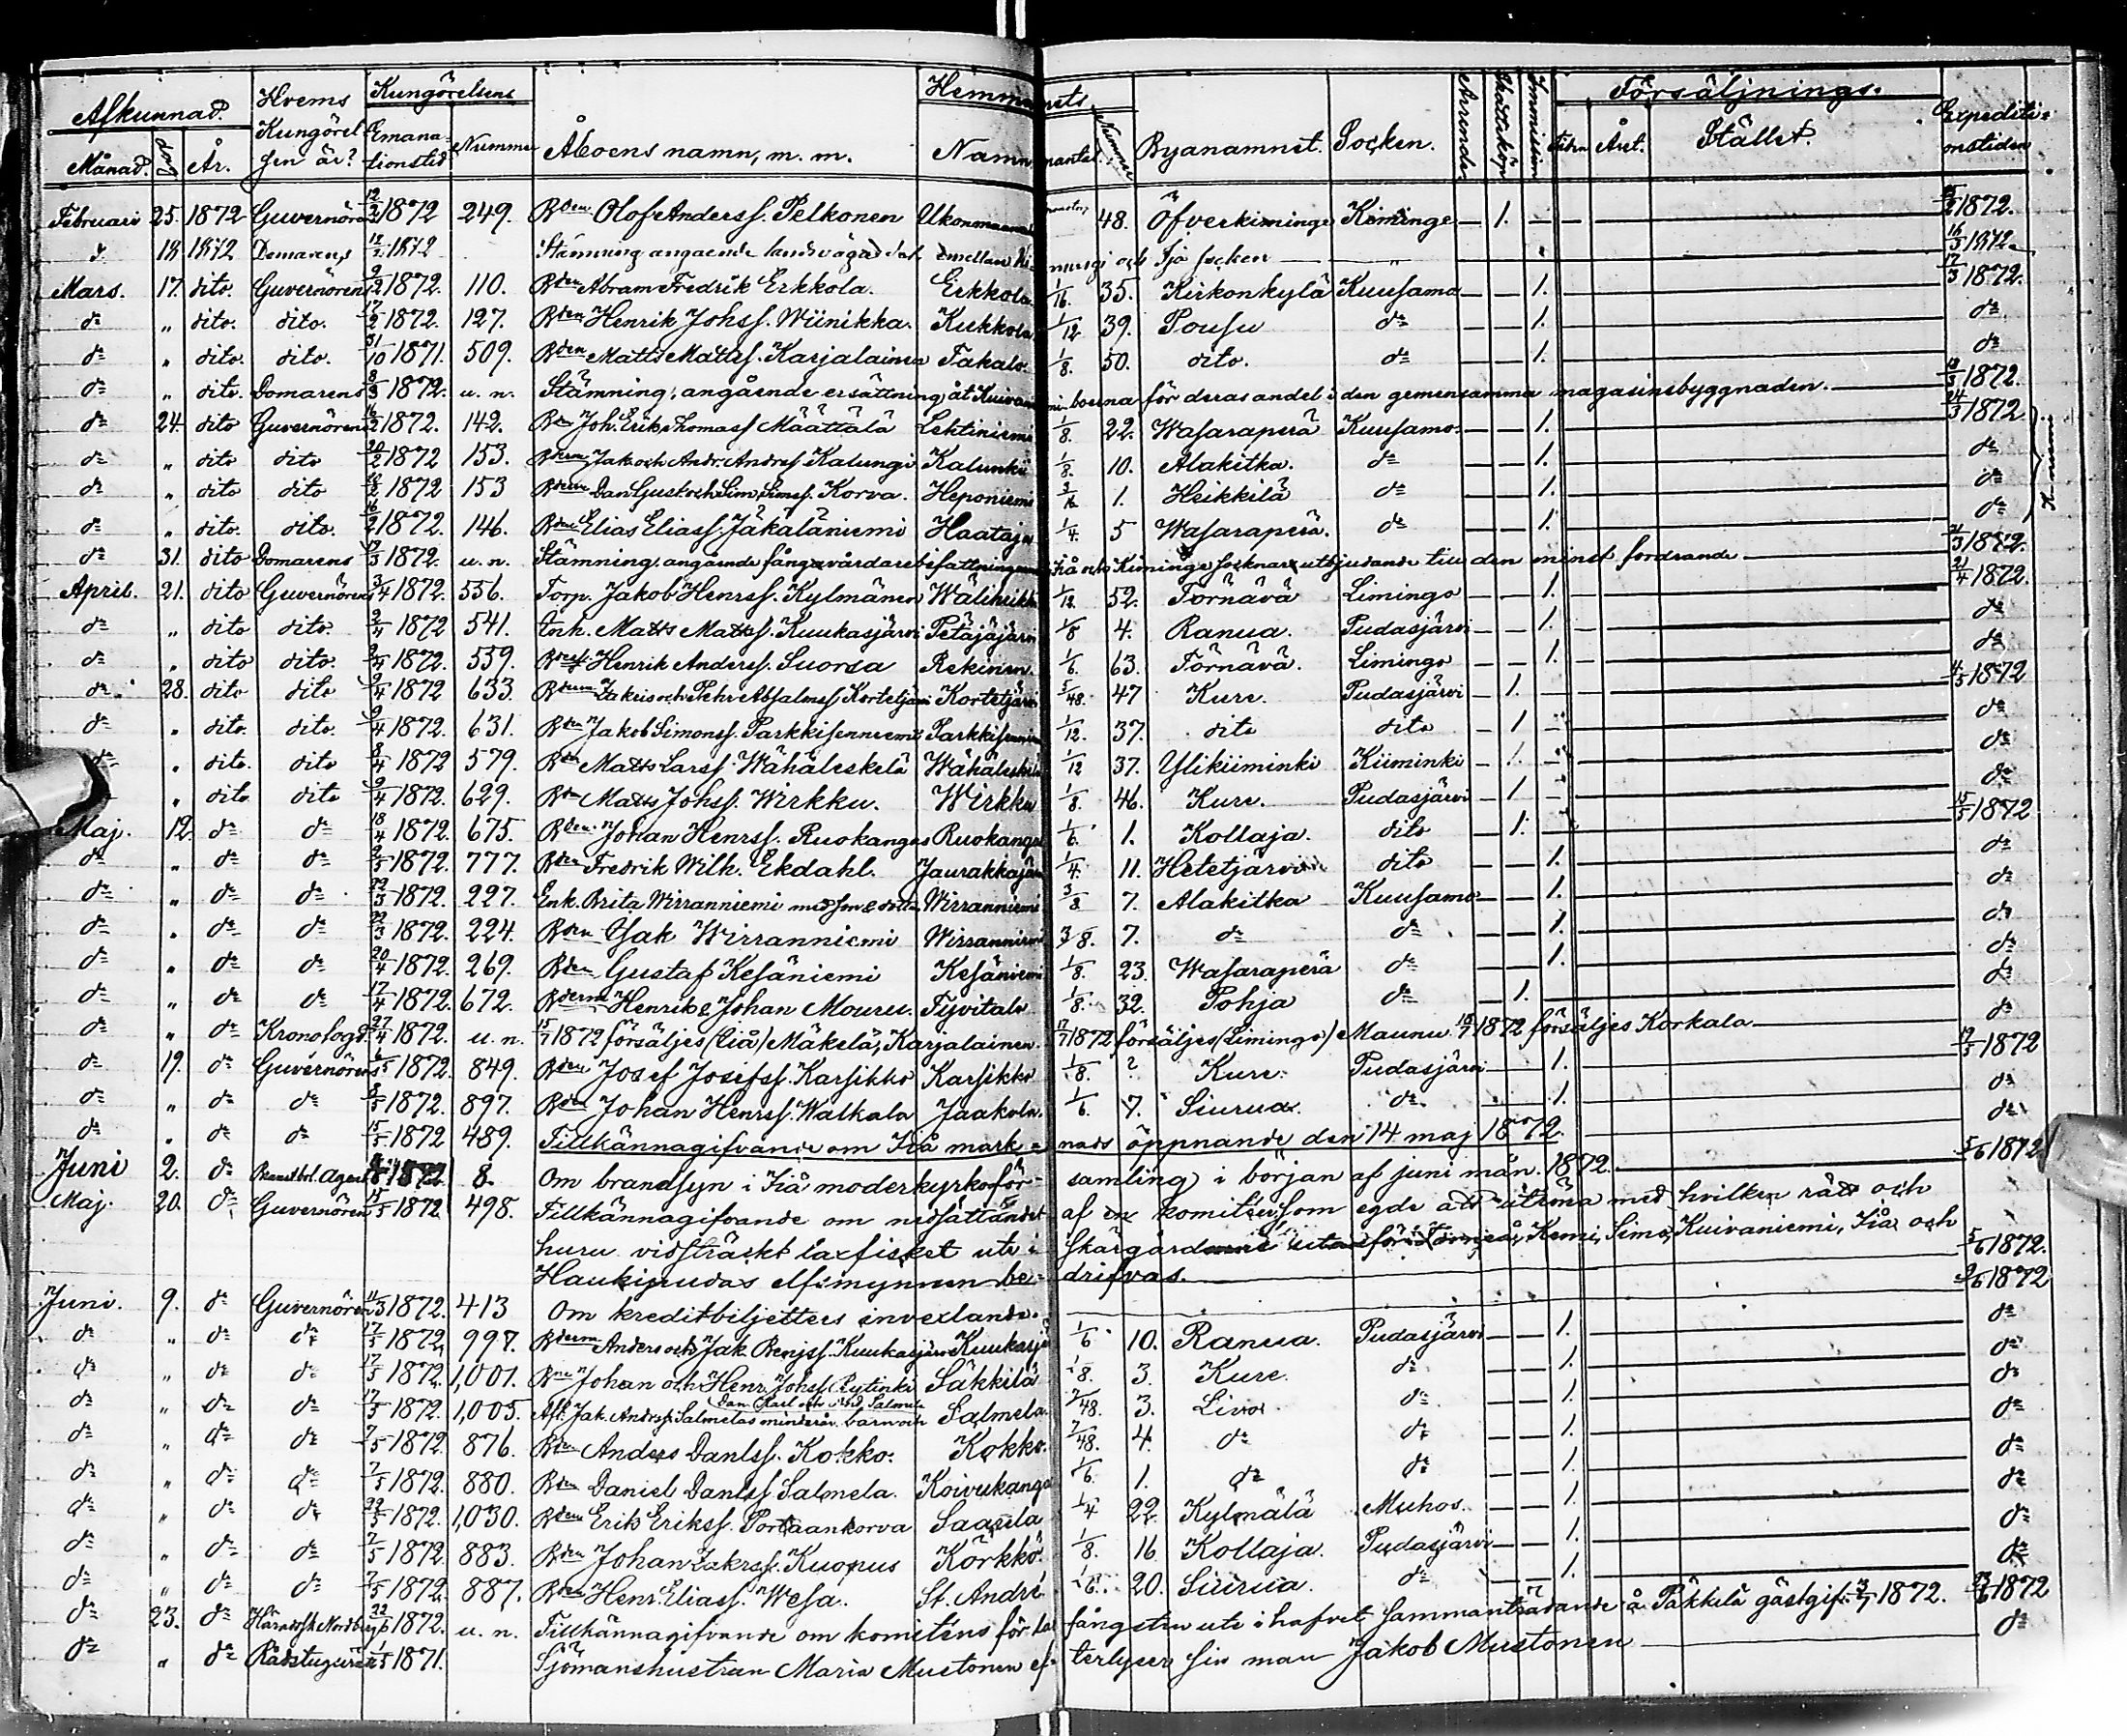 Afkunnad. Hvems Kungörelsen är? Kungörelsens Hemmanets Försäljnings- Expeditionstiden
Månad. Dag År. Emanationstid Nummer Åboens namn, m. m. Namn mantal. Nummer Byanamnet. Socken. Arrende. Skatteköp Immission Tiden Året. Stället.
Februari 25. 1872 Guvernörens 12/2 1872 249. Bden Olof Anderss. Pelkonen 48. Öfverkiminge Kiminge — 1. — 1872.
18 1872 Domarens 12/2 1872 Stämning angående landsvägsdel emellan och Ijå socken 16/3 1872.
Mars. 17. dito. Guvernörens 9/2 1872. 110. Bden Abram Fredrik Erkkola. Erkkola 1/16. 35. Kirkonkylä Kuusamo — — 1. 17/3 1872.
dº „ dito. dito. 17/2 1872. 127. Bden Henrik Johss. Wiinikka. Kukkola 1/12 39. Pousu dº — — 1. dº
dº „ dito. dito. 31/10 1871. 509. Bden Matts Mattss. Karjalainen Takalo. 1/8. 50. dito. dº — — 1. dº
dº „ dito Domarens 8/3 1872. u. n. Stämning, angående ersättning åt Kuivaniemi boerna för deras andel i den gemensamma magasinsbyggnaden. 18/3 1872.
dº 24. dito Guvernörens 16/2 1872. 142. Bden Joh. Erik Thomass Määttälä Lehtiniemi 1/8. 22. Wasaraperä Kuusamo. — — 1. 24/3 1872
dº „ dito dito 20/2 1872 153. Bderne Jak och Andr. Andrss Kalungi Kalunki 1/8. 10. Alakitka. dº — — 1. dº
dº „ dito dito 1872 153 Bderne Dan Gust och Sim. Simss. Korva. Heponiemi 3/16 1. Heikkilä dº — — 1. dº
dº „ dito. dito. 16/2 1872. 146. Bden Elias Eliass. Jäkäläniemi Haataja 1/4. 5 Wasaraperä. dº — — 1. dº
dº 31. dito Domarens 1872. u. n. Stämning angående fångvårdarebefattningens Iiå och Kiminge socknar utbjudande till den minst fordrande 31/3 1872.
April. 21. dito Guvernörens 3/4 1872. 556. Torp. Jakob Henrss. Kylmänen Wäliheikki 1/12 52. Törnävä Limingo — — 1. 21/4 1872
dº „ dito dito. 2/4 1872 541. Enk. Matts Mattss. Kuukasjärvi Petäjäjärvi 1/8 4. Ranua. Pudasjärvi — — 1. dº
dº „ dito dito. 2/4 1872. 539. Henrik Anderss. Suorsa Rekinen. 1/6. 63. Törnävä. Limingo — — 1. dº
dº 28. dito dito 9/4 1872 633. Bderne Zakris och Pehr Absalonss Kortetjärvi Kortetjärvi 5/48. 47 Kure. Pudasjärvi — 1. — 4/5 1872
dº „ dito. dito. 9/4 1872. 631. Bden Jakob Simonss. Parkkisenniemi Parkkisenniemi 1/12. 37. dito dito — 1 dº
dº „ dito. dito 8/4 1872 579. Bden Matts Larss. Wähäleskelä Wähäleskelä 1/12 37. Ylikiiminki Kiiminki — 1. dº
„ dito dito 9/4 1872. 629. Bden Matts Johss. Wirkku. Wirkku 1/8. 46. Kure. Pudasjärvi — 1 dº
Maj. 12. dº dº 18/4 1872. 675. Bden Johan Henrss. Ruokangas Ruokangas 1/6. 1. Kollaja. dito — 1. 15/5 1872
dº „ dº dº 2/5 1872. 777. Bden Fredrik Wilh. Ekdahl. Jaurakkajärvi 1/4. 11. Hetetjärvi dito — — 1. dº
dº „ dº dº 22/3 1872. 227. Enk. Brita Wirranniemi med son & dotter Wirranniemi 3/8 7. Alakitka Kuusamo — — 1. dº
dº „ dº dº 22/3 1872. 224. Bden Jak Wirranniemi Wirranniemi 3/8. 7. dº dº — — 1. dº
dº „ dº dº 20/4 1872. 269. Bden Gustaf Kesäniemi Kesäniemi 1/8. 23. Wasaraperä dº — — 1. dº
dº „ dº dº 17/4 1872. 672. Bderne Henrik & Johan Mouru. Tyvitalo 1/8. 32. Pohja dº — 1. dº
dº „ dº Kronofogd. 27/4 1872. u. n. 15/7 1872 försäljes (Iiå) Mäkelä, Karjalainen. 17/7 1872 försäljes (Limingo) Maunu. 18/7 1872 försäljes Korkala dº
dº 19. dº Guvernörens 6/5 1872. 849. Bden Josef Josefss. Karsikko Karsikko 1/8. ? Kure. Pudasjärvi — 1. 19/5 1872
dº „ dº dº 8/5 1872. 897. Bden Johan Henrss. Walkala Jaakola. 1/6. 7. Siurua. dº — 1. dº
dº „ dº dº 15/5 1872 489. Tillkännagifvande om Iiå marknads öppnande den 14 maj 1872. dº
Juni 2. dº Brandbol. Agent 1872 8. Om brandsyn i Iiå moderkyrkoförsamling i början af juni mån. 1872. 5/6 1872
Maj. 20. dº Guvernören 15/5 1872. 498. Tillkännagifvande om nedsättandet af en komité, som egde att utröna med hvilken rätt och
huru vidsträckt laxfisket ute i skärgården utanför Torneå, Kemi, Simo, Kuivaniemi, Iiå och 5/6 1872.
Haukipudas elfsmynnen bedrifvas. 9/6 1872
Juni. 9. dº Guvernören 11/3 1872. 413 Om kreditbiljetters invexlande. dº
dº „ dº dº 17/5 1872. 997. Bderne Anders och Jak. Benjss. Kuukasjärvi Kuukasjärvi 1/6 10. Ranua. Pudasjärvi — — 1. dº
dº „ dº dº 17/5 1872. 1,001. Bne Johan och Henr. Johss. Rytinki Säkkilä 1/8. 3. Kure. dº — — 1. dº
dº „ dº dº 17/5 1872. 1,005. Afl. Jak. Andrss. Salmelas minderår. barn och Dan Karl och Salmela Salmela. 7/48. 3. Livo. dº — — 1. dº
dº „ dº dº 7/5 1872. 876. Bden Anders Danlss. Kokko. Kokko. 7/48. 4. dº dº — — 1. dº
dº „ dº dº 7/5 1872. 880. Bden Daniel Danlss Salmela. Koivukangas 1/6. 1. dº dº — — 1. dº
dº „ dº dº 22/5 1872. 1,030. Bden Erik Erikss. Portaankorva Saarela 1/4 22. Kylmälä Muhos. — — 1. dº
dº „ dº dº 7/5 1872. 883. Bden Johan Zakrss. Kuopus Körkkö. 1/8. 16. Kollaja. Pudasjärvi — — 1. dº
dº „ dº dº 7/5 1872. 887. Bden Henr. Eliass. Wesa. St. André 1/6. 20. Siurua. dº — — 1. dº
dº 23. dº Häradssk. Nordberg 22/6 1872. u. n. Tillkännagifvande om komiténs för lax fångsten ute i hafvet sammanträdande å Päkkilä gästgif. 1872. 23/6 1872
dº „ dº Rådstugurätt 1871. Sjömanshustrun Maria Mustonen efterlyser sin man Jakob Mustonen dº